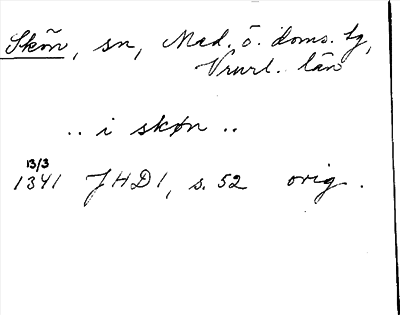 Skön, sn, Med. ö. doms. lg,
län
.. i skøn ..
13/3
1341 JHD1, s. 52 orig.